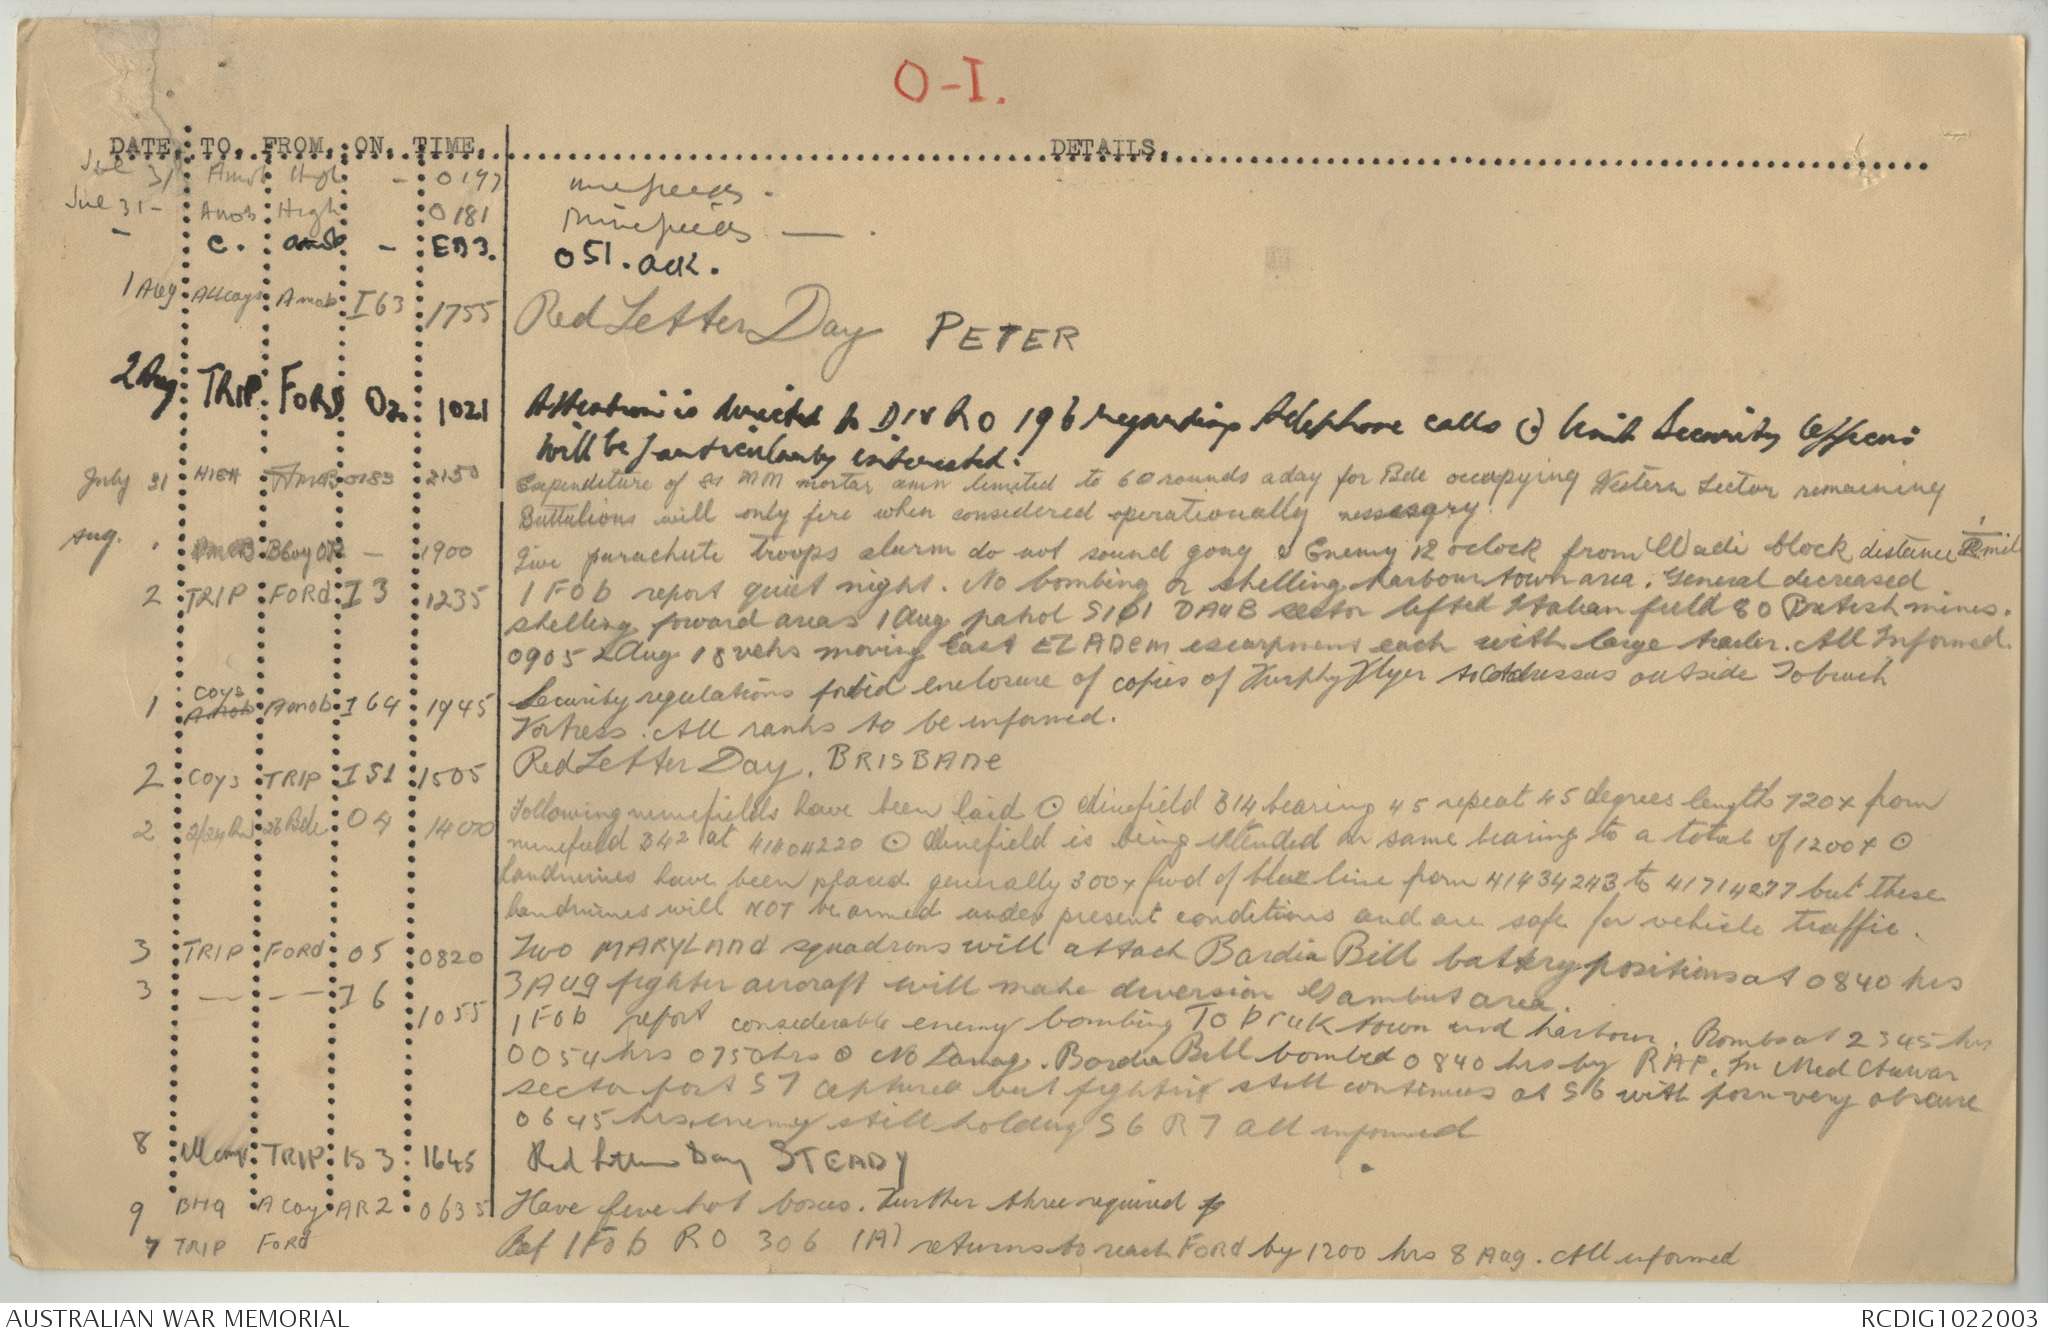 O-I.
DATE. TO. FROM. ON. TIME. DETAILS.
31 Amob High - 0197
Jul 31 - Amob High 0181 Minefields
- C. Amob - EB3. 051. ack.
1 Aug All coys Amob I63 1755 Red Letter Day PETER
2 Aug TRIP FORD O2 1021 Attention is directed to DIV RO 196 regarding telephone calls (.) Unit Security Officers
will be particularly interested.
July 31 HIGH Amob 0183 2150 Expenditure of 81 MM mortar amn limited to 60 rounds a day for Bde occupying Western Sector remaining
Battalions will only fire when considered operationally nessesgry
Aug. 1 Amob B Coy OP - 1900 Give parachute troops alarm do not sound gong & Enemy 12 oclock from Wadi block distance 1 mile
2 TRIP FORD I3 1235 1 Fob report quiet night. No bombing or shelling harbour town area. General decreased
shelling forward areas 1 Aug patrol S101 DAUB sector lifted Italian field 80 British mines.
0905 2 Aug 18 vehs moving East EL ADEM escarpment each with large trailer. All Informed.
1 Coys Amob Amob I64 1945 Security regulations forbid enclosure of copies of Furphy Flyer to addresses outside Tobruch
Fortress. All ranks to be informed.
2 Coys TRIP I51 1505 Red Letter Day. BRISBANE
2 2/24 Bn 26 Bde O4 1400 Following minefields have been laid ⊙ Minefield B14 bearing 45 repeat 45 degrees length 720x from
minefield B42 at 41404220 ⊙ Minefield is being extended on same bearing to a total of 1200x ⊙
landmines have been placed generally 300x fwd of blue line from 41434243 to 41714277 but these
landmines will NOT be armed under present conditions and are safe for vehicle traffic.
3 TRIP FORD O5 0820 Two MARYLAND squadrons will attach Bardia Bill battery positions at 0840 hrs
3 Aug fighter aircraft will make diversion Gambut area.
3 - - I6 1055 1 Fob report considerable enemy bombing TObruk town and harbour. Bombs at 2345 hrs
0054 hrs 0750 hrs ⊙ No Damage. Bardia Bill bombed 0840 hrs by RAF. In Med Chawar
sector post S7 captured but fighting still continues at S6 with posn very obscure
0645 hrs. enemy still holding S6 R7 all informed
8 TRIP IS3 1645 Red Letter Day STEADY
9 BHQ A Coy AR2 0635 Have five hot boxes. Further three required
7 TRIP FORD Ref 1 Fob RO 306 (A) returns to reach FORD by 1200 hrs 8 Aug. All informed
AUSTRALIAN WAR MEMORIAL RCDIG1022003